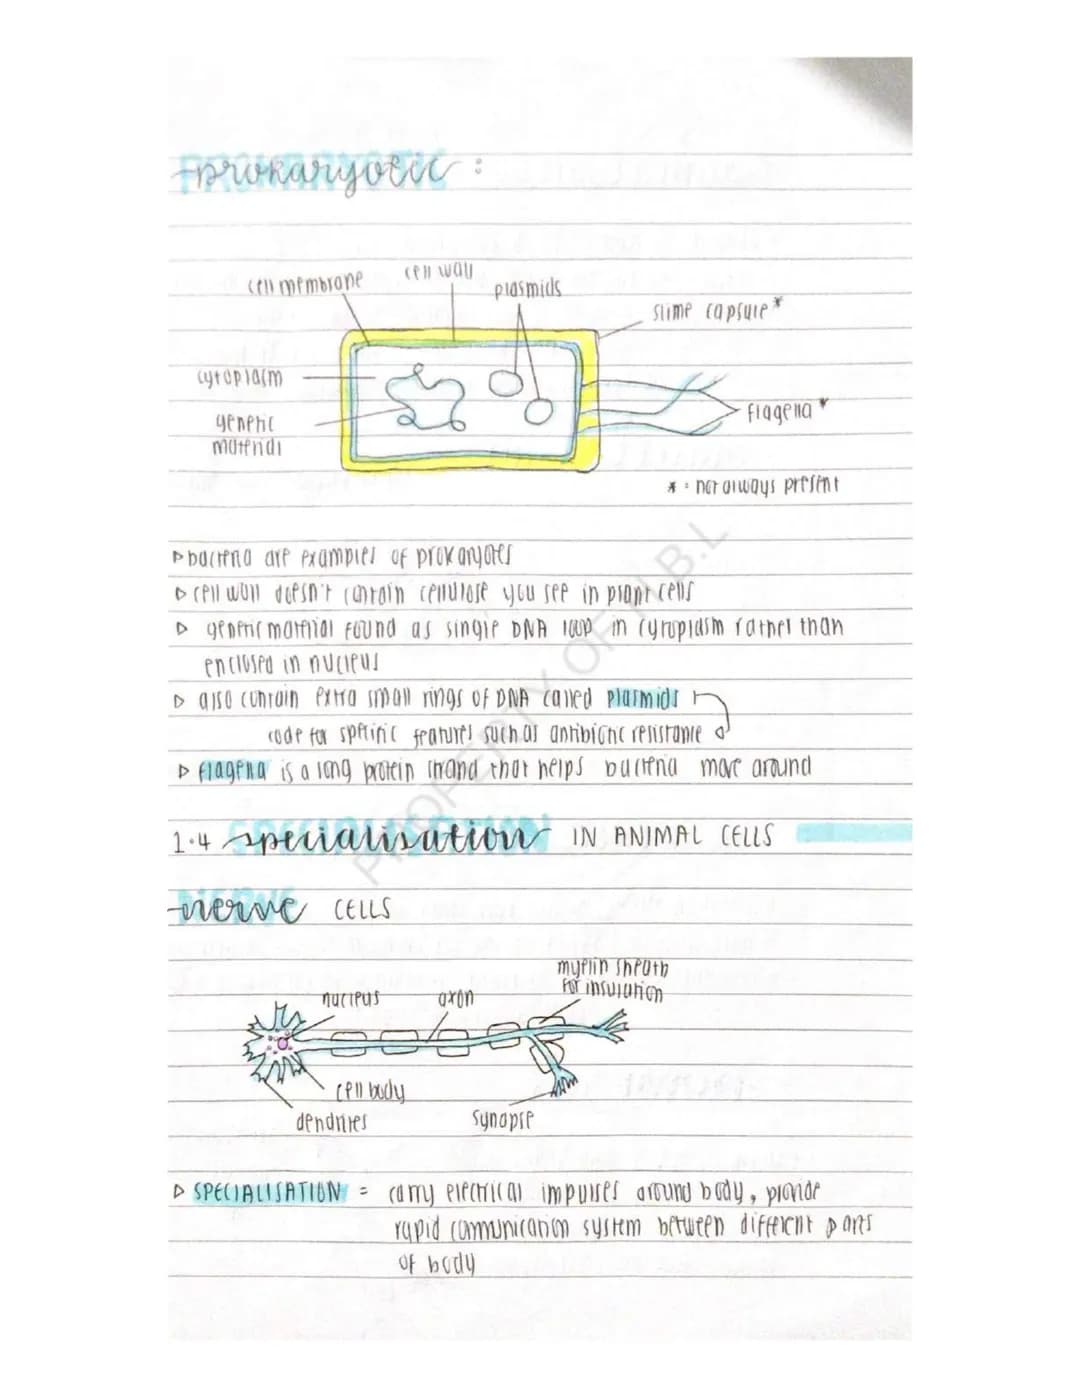 prokaryotic:
cell membrane
cell wall
plasmids
slime capsule*
cytoplasm
genetic
material
flagella*
* = not always present
▷ bacteria are examples of prokaryotes
▷ cell wall doesn't contain cellulose you see in plant cells
▷ genetic material found as single DNA loop in cytoplasm rather than
enclosed in nucleus
▷ also contain extra small rings of DNA called plasmids
code for specific features such as antibiotic resistance
▷ flagella is a long protein strand that helps bacteria move around
PROPERTY OF N.B.L
1.4 specialisation IN ANIMAL CELLS
nerve CELLS
nucleus
axon
myelin sheath
for insulation
cell body
dendrites
synapse
▷ SPECIALISATION = carry electrical impulses around body, provide
rapid communication system between different parts
of body